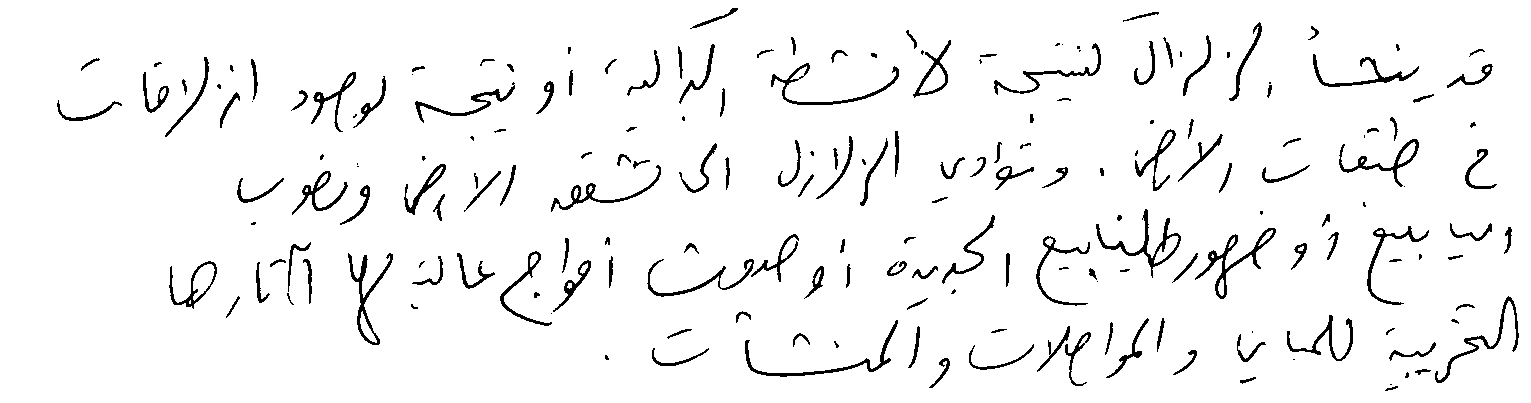 قد ينشأ الزلزال كنتيجة لأنشطة البراكين أو نتيجة لوجود انزلاقات
في طبقات الأرض . وتؤدي الزلازل الى تشقق الأرض ونضوب
الينابيع أو ظهور الينابيع الجديدة أو حدوث أمواج عالية لها آثارها
التخريبية للمباني والمواصلات والمنشآت .